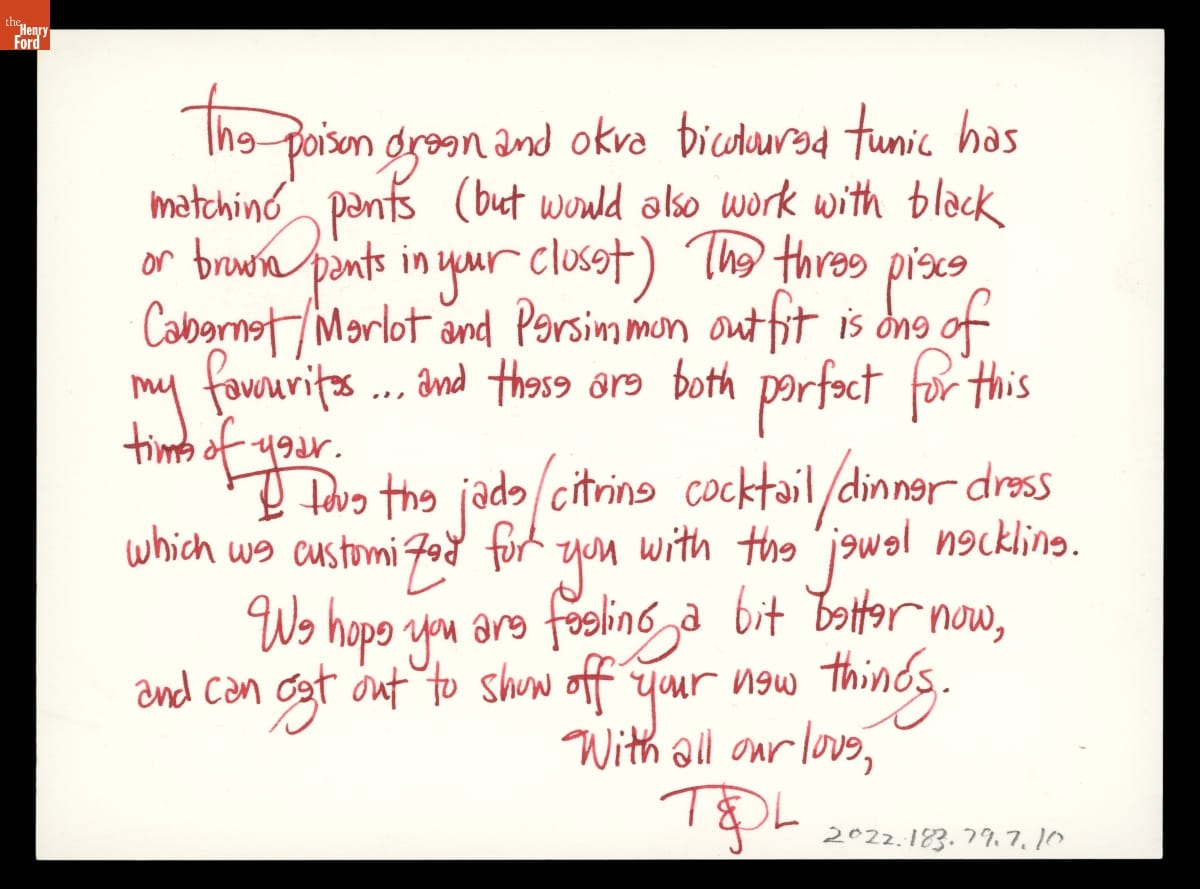 the
Henry
Ford
The poison green and okra bicoloured tunic has
matching pants (but would also work with black
or brown pants in your closet) The three piece
Cabernet/Merlot and Persimmon outfit is one of
my favourites ... and these are both perfect for this
time of year.
I love the jade/citrine cocktail/dinner dress
which we customized for you with the jewel neckline.
We hope you are feeling a bit better now,
and can get out to show off your new things.
With all our love,
T & L
2022.183.79.7.10